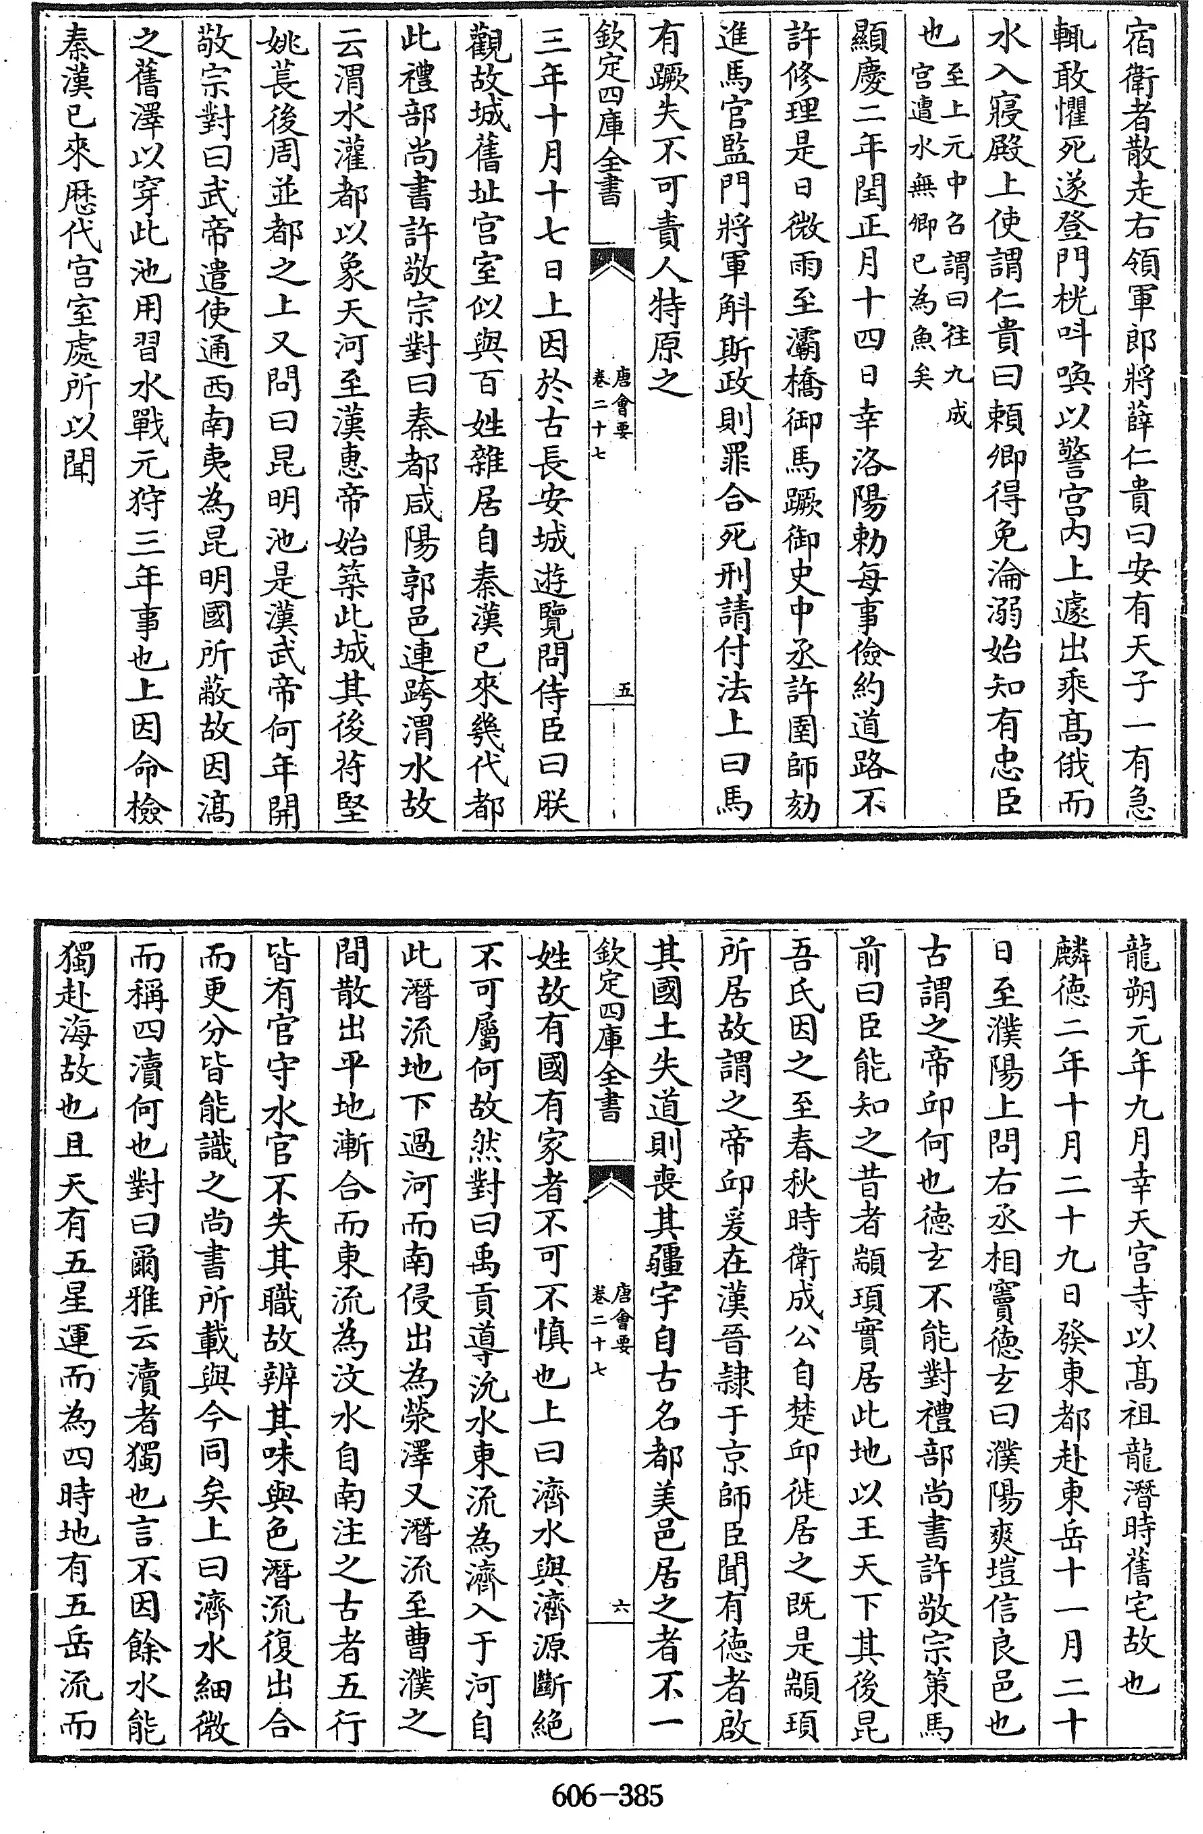 宿衛者散走右領軍郎將薛仁貴曰安有天子一有急
輒敢懼死遂登門桄呌喚以警宫内上遽出乘髙俄而
水入寢殿上使謂仁貴曰頼卿得免淪溺始知有忠臣
也至上元中召謂曰往九成
宫遭水無卿已為魚矣
顯慶二年閏正月十四日幸洛陽勅每事儉約道路不
許修理是日微雨至灞橋御馬蹶御史中丞許圉師劾
進馬官監門將軍斛斯政則罪合死刑請付法上曰馬
有蹶失不可責人特原之
欽定四庫全書
唐會要
卷二十七
五
三年十月十七日上因於古長安城遊覽問侍臣曰朕
觀故城舊址宫室似與百姓雜居自秦漢已來幾代都
此禮部尚書許敬宗對曰秦都咸陽郭邑連跨渭水故
云渭水灌都以象天河至漢惠帝始築此城其後苻堅
姚萇後周並都之上又問曰昆明池是漢武帝何年開
敬宗對曰武帝遣使通西南夷為昆明國所蔽故因滈
之舊澤以穿此池用習水戰元狩三年事也上因命檢
秦漢已來歴代宫室處所以聞
龍朔元年九月幸天宫寺以髙祖龍潛時舊宅故也
麟徳二年十月二十九日發東都赴東岳十一月二十
日至濮陽上問右丞相竇徳玄曰濮陽爽塏信良邑也
古謂之帝邱何也徳玄不能對禮部尚書許敬宗策馬
前曰臣能知之昔者顓頊實居此地以王天下其後昆
吾氏因之至春秋時衛成公自楚邱徙居之既是顓頊
所居故謂之帝邱爰在漢晉隷于京師臣聞有徳者啟
其國土失道則喪其疆宇自古名都美邑居之者不一
欽定四庫全書
唐會要
卷二十七
六
姓故有國有家者不可不慎也上曰濟水與濟源斷絶
不可屬何故然對曰禹貢導沇水東流為濟入于河自
此潛流地下過河而南侵出為滎澤又潛流至曹濮之
間散出平地漸合而東流為汶水自南注之古者五行
皆有官守水官不失其職故辨其味與色潛流復出合
而更分皆能識之尚書所載與今同矣上曰濟水細微
而稱四瀆何也對曰爾雅云瀆者獨也言不因餘水能
獨赴海故也且天有五星運而為四時地有五岳流而
606-385